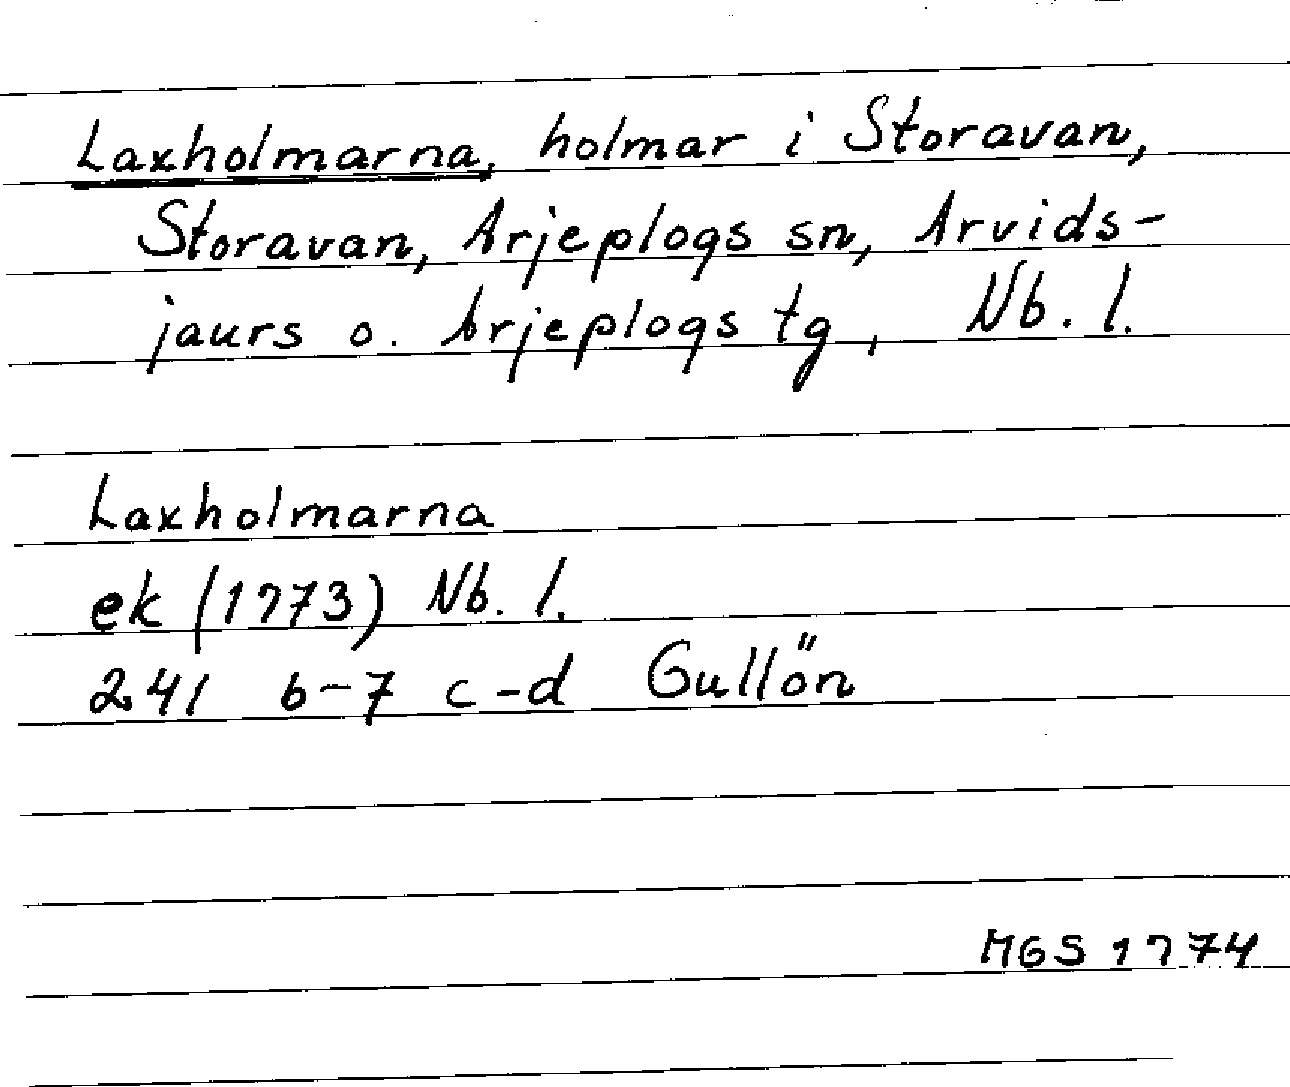 Laxholmarna, holmar i Storavan,
Storavan, Arjeplogs sn, Arvids-
jaurs o. Arjeplogs tg, Nb. l.
Laxholmarna
ek (1973) Nb. l.
24I 6-7 c-d Gullön
MGS 1974